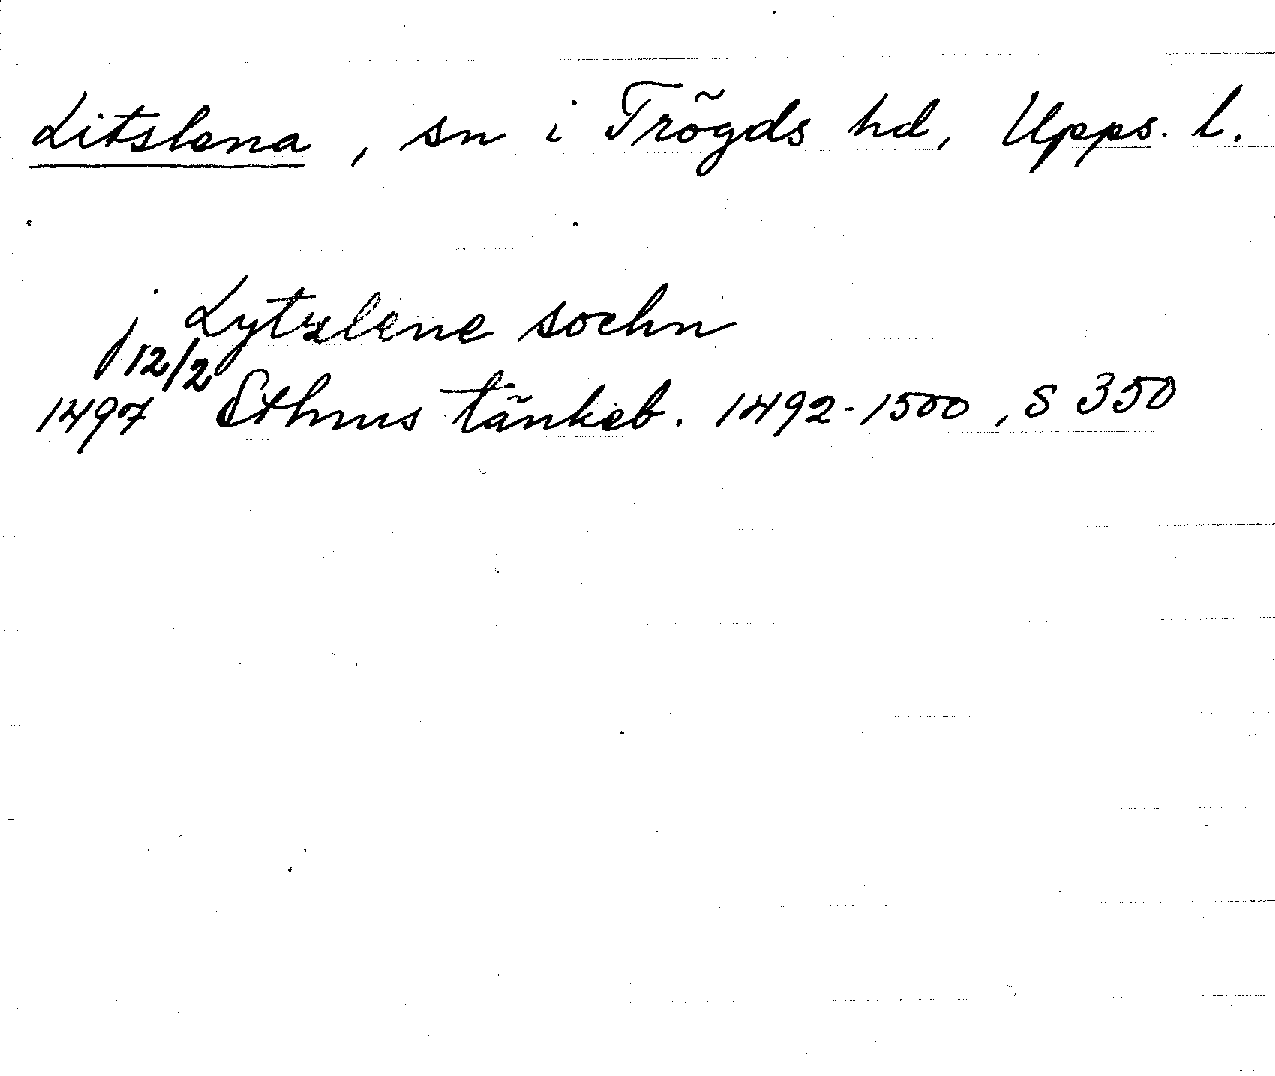 Litslena, sn i Trögds hd, Upps. l.
j Lytzlene sochn
12/2
1497 Sthms tänkeb. 1492-1500, s 350